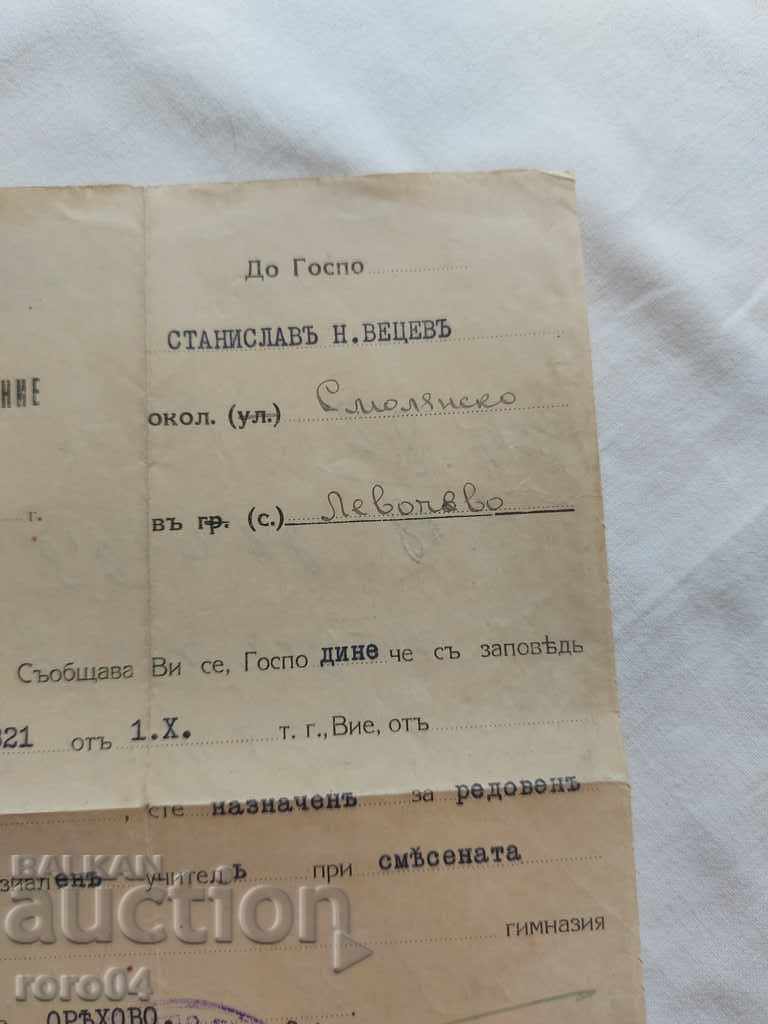 До Госпо
СТАНИСЛАВЪ Н.ВЕЦЕВЪ
НИЕ
окол. (ул.) Смолянско
г.
въ гр. (с.) Левочево
Съобщава Ви се, Господине че съ заповѣдь
321 отъ 1.X. т. г., Вие, отъ
, сте назначенъ за редовенъ
иаленъ учителъ при смѣсената
гимназия
ОРѢХОВО.
BALKAN
auction
roro04